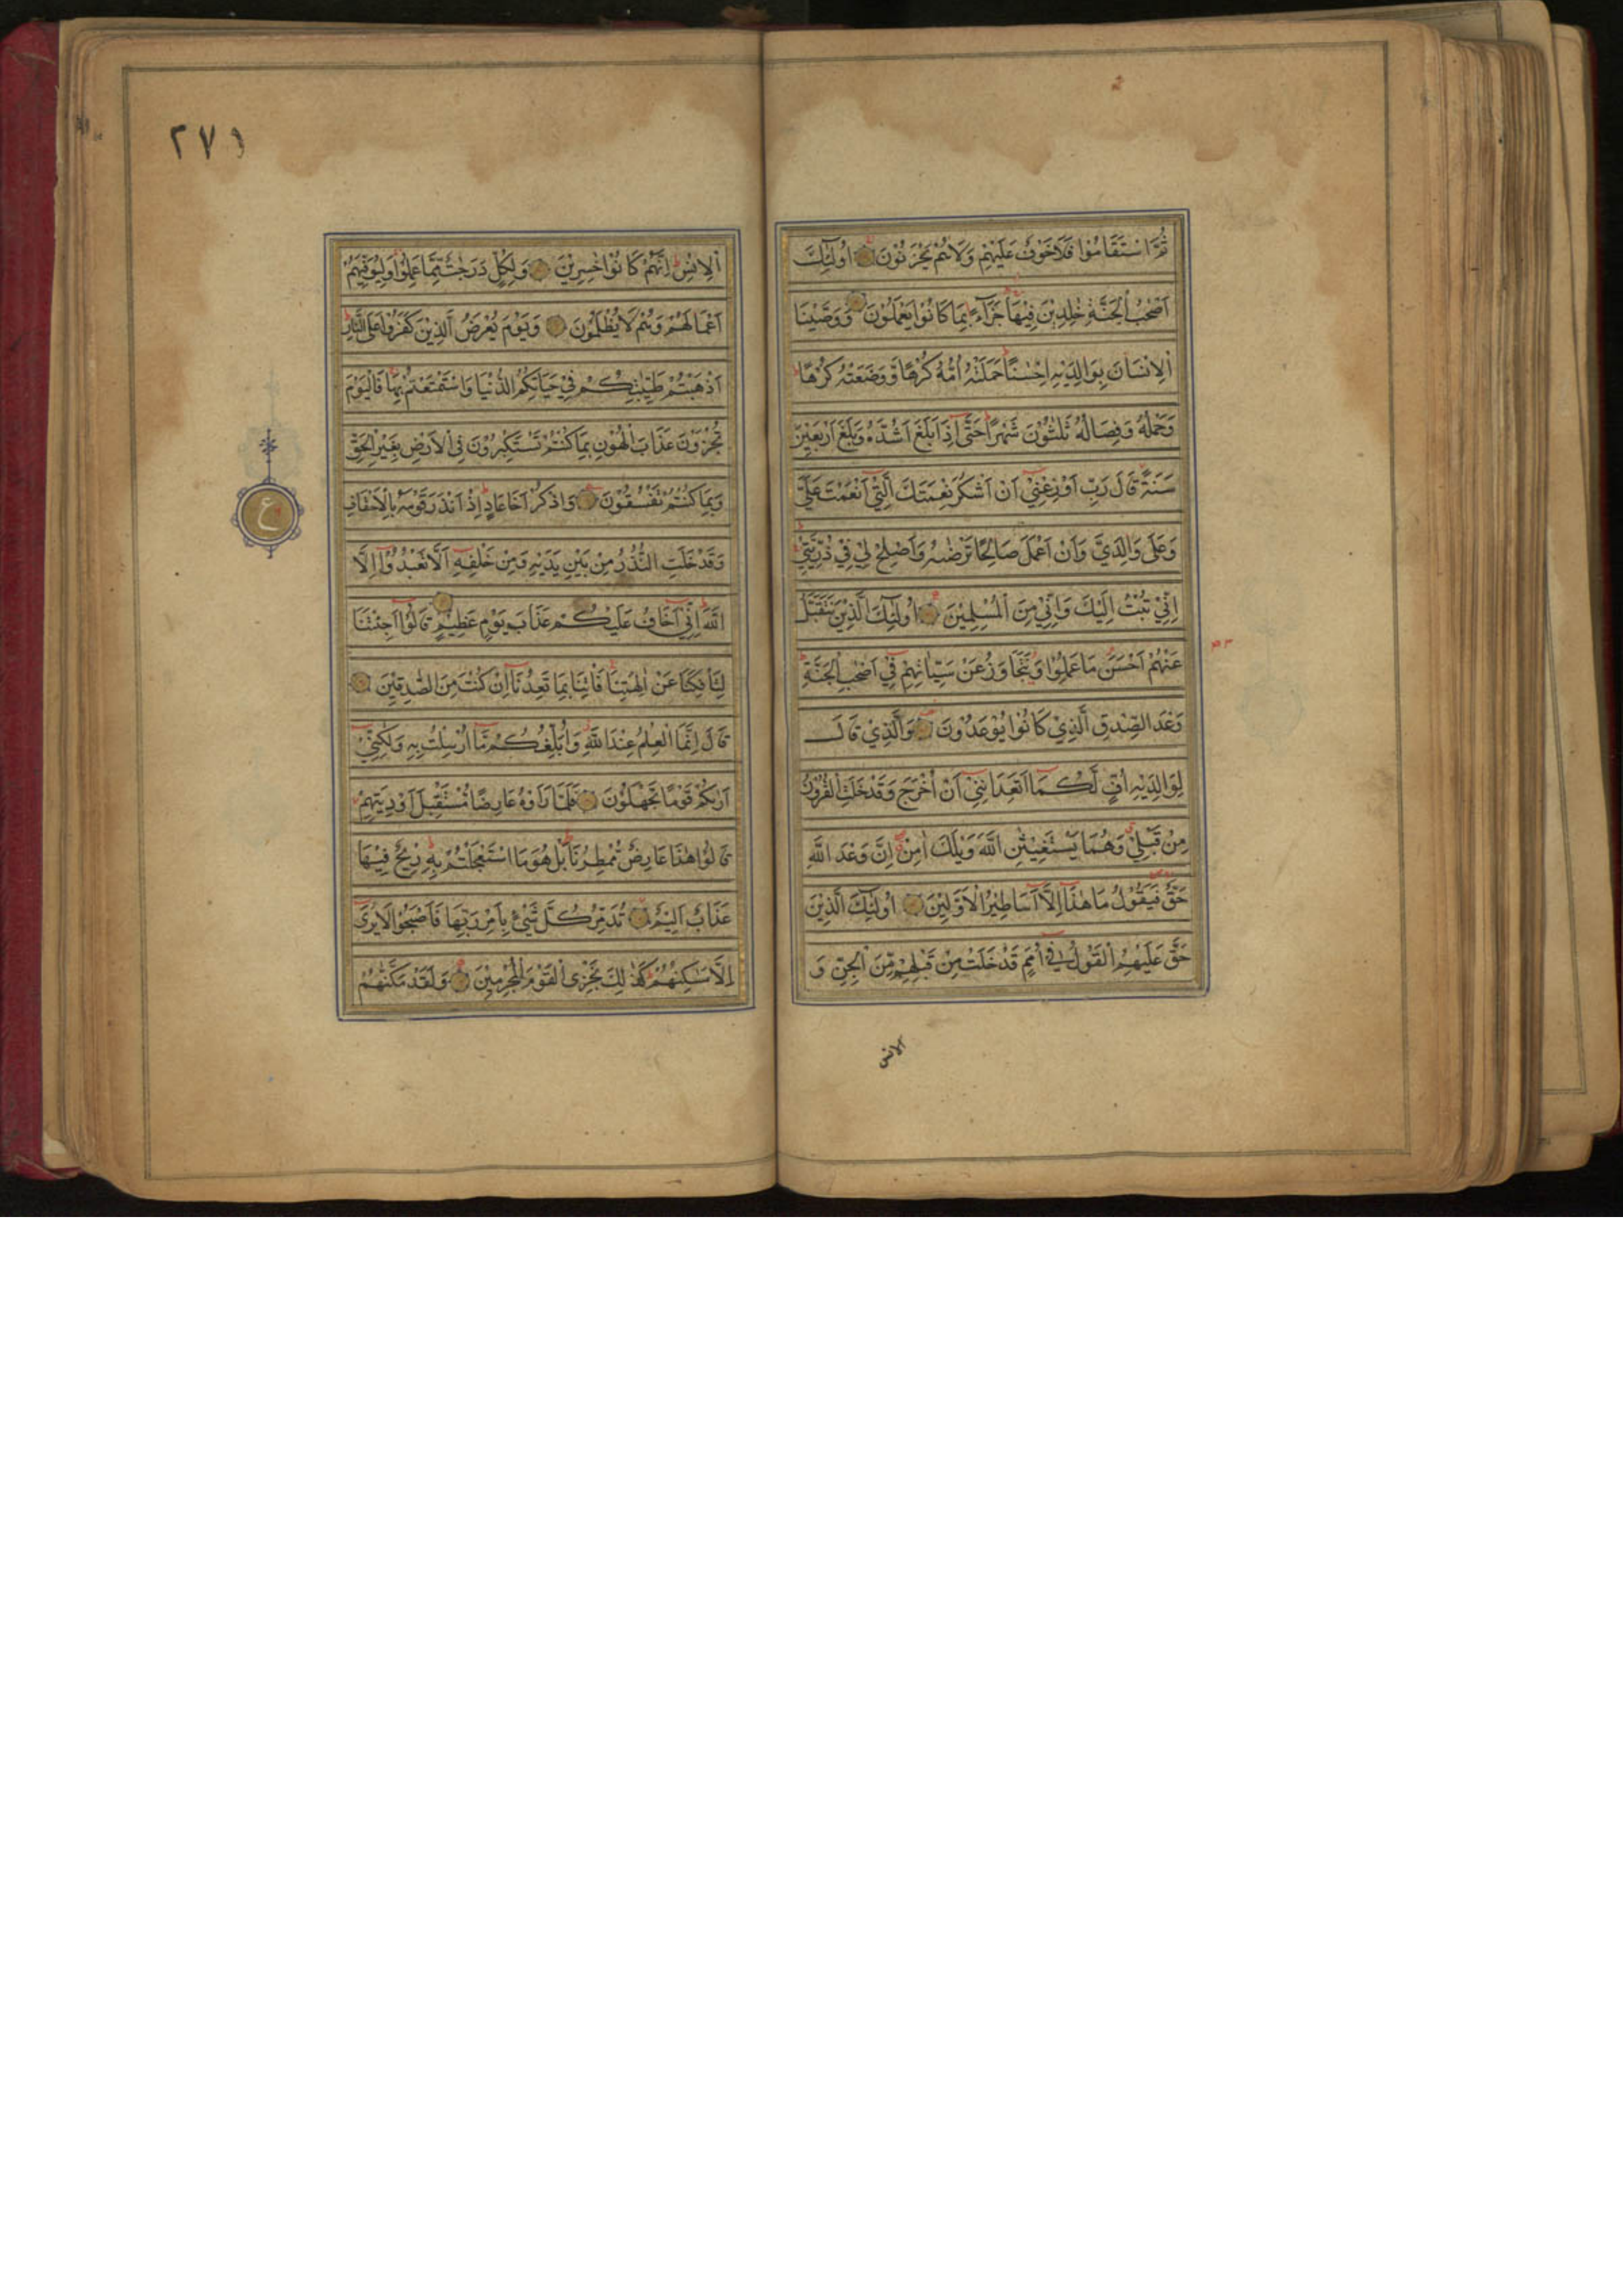 ثُمَّ اسْتَقَامُوْا فَلَا خَوْفٌ عَلَيْهِمْ وَلَا هُمْ يَحْزَنُوْنَ اُولٰٓئِكَ
اَصْحٰبُ الْجَنَّةِ خٰلِدِيْنَ فِيْهَا جَزَآءً بِمَا كَانُوْا يَعْمَلُوْنَ وَوَصَّيْنَا
الْاِنْسَانَ بِوَالِدَيْهِ اِحْسٰنًا حَمَلَتْهُ اُمُّهٗ كُرْهًا وَّوَضَعَتْهُ كُرْهًا
وَحَمْلُهٗ وَفِصَالُهٗ ثَلٰثُوْنَ شَهْرًا حَتّٰى اِذَا بَلَغَ اَشُدَّهٗ وَبَلَغَ اَرْبَعِيْنَ
سَنَةً قَالَ رَبِّ اَوْزِعْنِيْ اَنْ اَشْكُرَ نِعْمَتَكَ الَّتِيْ اَنْعَمْتَ عَلَيَّ
وَعَلٰى وَالِدَيَّ وَاَنْ اَعْمَلَ صَالِحًا تَرْضٰىهُ وَاَصْلِحْ لِيْ فِيْ ذُرِّيَّتِيْ
اِنِّيْ تُبْتُ اِلَيْكَ وَاِنِّيْ مِنَ الْمُسْلِمِيْنَ اُولٰٓئِكَ الَّذِيْنَ نَتَقَبَّلُ
عَنْهُمْ اَحْسَنَ مَا عَمِلُوْا وَنَتَجَاوَزُ عَنْ سَيِّاٰتِهِمْ فِيْ اَصْحٰبِ الْجَنَّةِ
وَعْدَ الصِّدْقِ الَّذِيْ كَانُوْا يُوْعَدُوْنَ وَالَّذِيْ قَالَ
لِوَالِدَيْهِ اُفٍّ لَّكُمَا اَتَعِدَانِنِيْ اَنْ اُخْرَجَ وَقَدْ خَلَتِ الْقُرُوْنُ
مِنْ قَبْلِيْ وَهُمَا يَسْتَغِيْثٰنِ اللّٰهَ وَيْلَكَ اٰمِنْ اِنَّ وَعْدَ اللّٰهِ
حَقٌّ فَيَقُوْلُ مَا هٰذَا اِلَّا اَسَاطِيْرُ الْاَوَّلِيْنَ اُولٰٓئِكَ الَّذِيْنَ
حَقَّ عَلَيْهِمُ الْقَوْلُ فِيْ اُمَمٍ قَدْ خَلَتْ مِنْ قَبْلِهِمْ مِّنَ الْجِنِّ وَ
الانس
٢٧١
الْاِنْسِ اِنَّهُمْ كَانُوْا خٰسِرِيْنَ وَلِكُلٍّ دَرَجٰتٌ مِّمَّا عَمِلُوْا وَلِيُوَفِّيَهُمْ
اَعْمَالَهُمْ وَهُمْ لَا يُظْلَمُوْنَ وَيَوْمَ يُعْرَضُ الَّذِيْنَ كَفَرُوْا عَلَى النَّارِ
اَذْهَبْتُمْ طَيِّبٰتِكُمْ فِيْ حَيَاتِكُمُ الدُّنْيَا وَاسْتَمْتَعْتُمْ بِهَا فَالْيَوْمَ
تُجْزَوْنَ عَذَابَ الْهُوْنِ بِمَا كُنْتُمْ تَسْتَكْبِرُوْنَ فِى الْاَرْضِ بِغَيْرِ الْحَقِّ
وَبِمَا كُنْتُمْ تَفْسُقُوْنَ وَاذْكُرْ اَخَا عَادٍ اِذْ اَنْذَرَ قَوْمَهٗ بِالْاَحْقَافِ
وَقَدْ خَلَتِ النُّذُرُ مِنْ بَيْنِ يَدَيْهِ وَمِنْ خَلْفِهٖ اَلَّا تَعْبُدُوْا اِلَّا
اللّٰهَ اِنِّيْ اَخَافُ عَلَيْكُمْ عَذَابَ يَوْمٍ عَظِيْمٍ قَالُوْا اَجِئْتَنَا
لِتَاْفِكَنَا عَنْ اٰلِهَتِنَا فَاْتِنَا بِمَا تَعِدُنَا اِنْ كُنْتَ مِنَ الصّٰدِقِيْنَ
قَالَ اِنَّمَا الْعِلْمُ عِنْدَ اللّٰهِ وَاُبَلِّغُكُمْ مَّا اُرْسِلْتُ بِهٖ وَلٰكِنِّيْ
اَرٰىكُمْ قَوْمًا تَجْهَلُوْنَ فَلَمَّا رَاَوْهُ عَارِضًا مُّسْتَقْبِلَ اَوْدِيَتِهِمْ
قَالُوْا هٰذَا عَارِضٌ مُّمْطِرُنَا بَلْ هُوَ مَا اسْتَعْجَلْتُمْ بِهٖ رِيْحٌ فِيْهَا
عَذَابٌ اَلِيْمٌ تُدَمِّرُ كُلَّ شَيْءٍ بِاَمْرِ رَبِّهَا فَاَصْبَحُوْا لَا يُرٰى
اِلَّا مَسٰكِنُهُمْ كَذٰلِكَ نَجْزِى الْقَوْمَ الْمُجْرِمِيْنَ وَلَقَدْ مَكَّنّٰهُمْ
ع